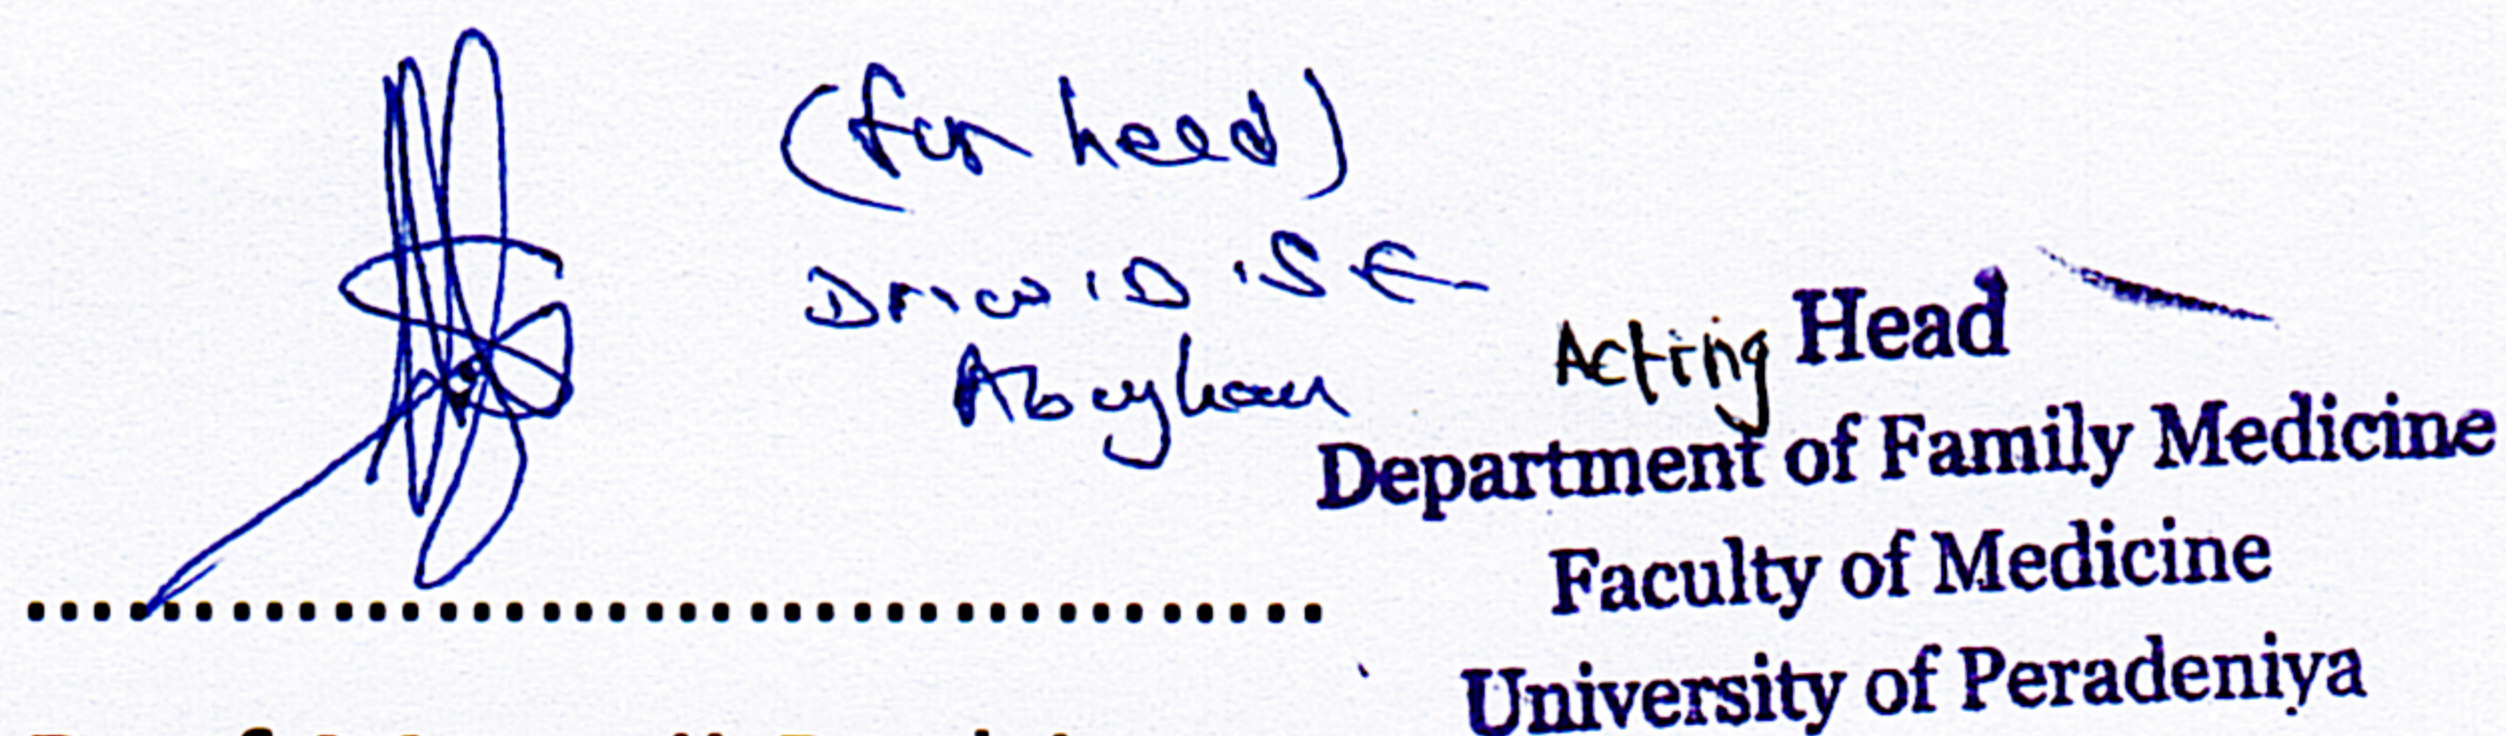 (for head)
Dr. W. D. S. E
Acting Head
Department of Family Medicine
Faculty of Medicine
University of Peradeniya